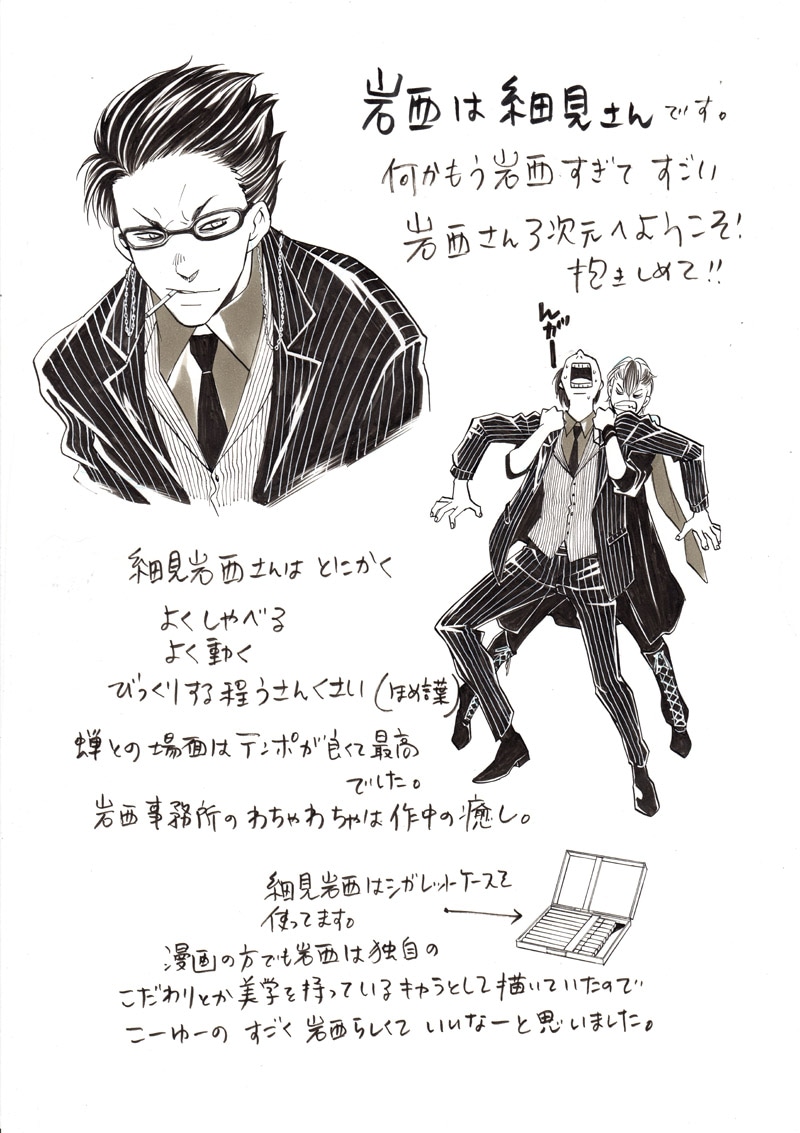 岩西は細見さんです。
何かもう岩西すぎて すごい
岩西さん3次元へようこそ!
抱きしめて!!
んがー
細見岩西さんは とにかく
よくしゃべる
よく動く
びっくりする程うさんくさい(ほめ言葉)
蝉との場面はテンポが良くて最高
でした。
岩西事務所のわちゃわちゃは作中の癒し。
細見岩西はシガレットケースを
使ってます。
漫画の方でも岩西は独自の
こだわりとか美学を持っているキャラとして描いていたので
こーゆーの すごく岩西らしくて いいなーと思いました。